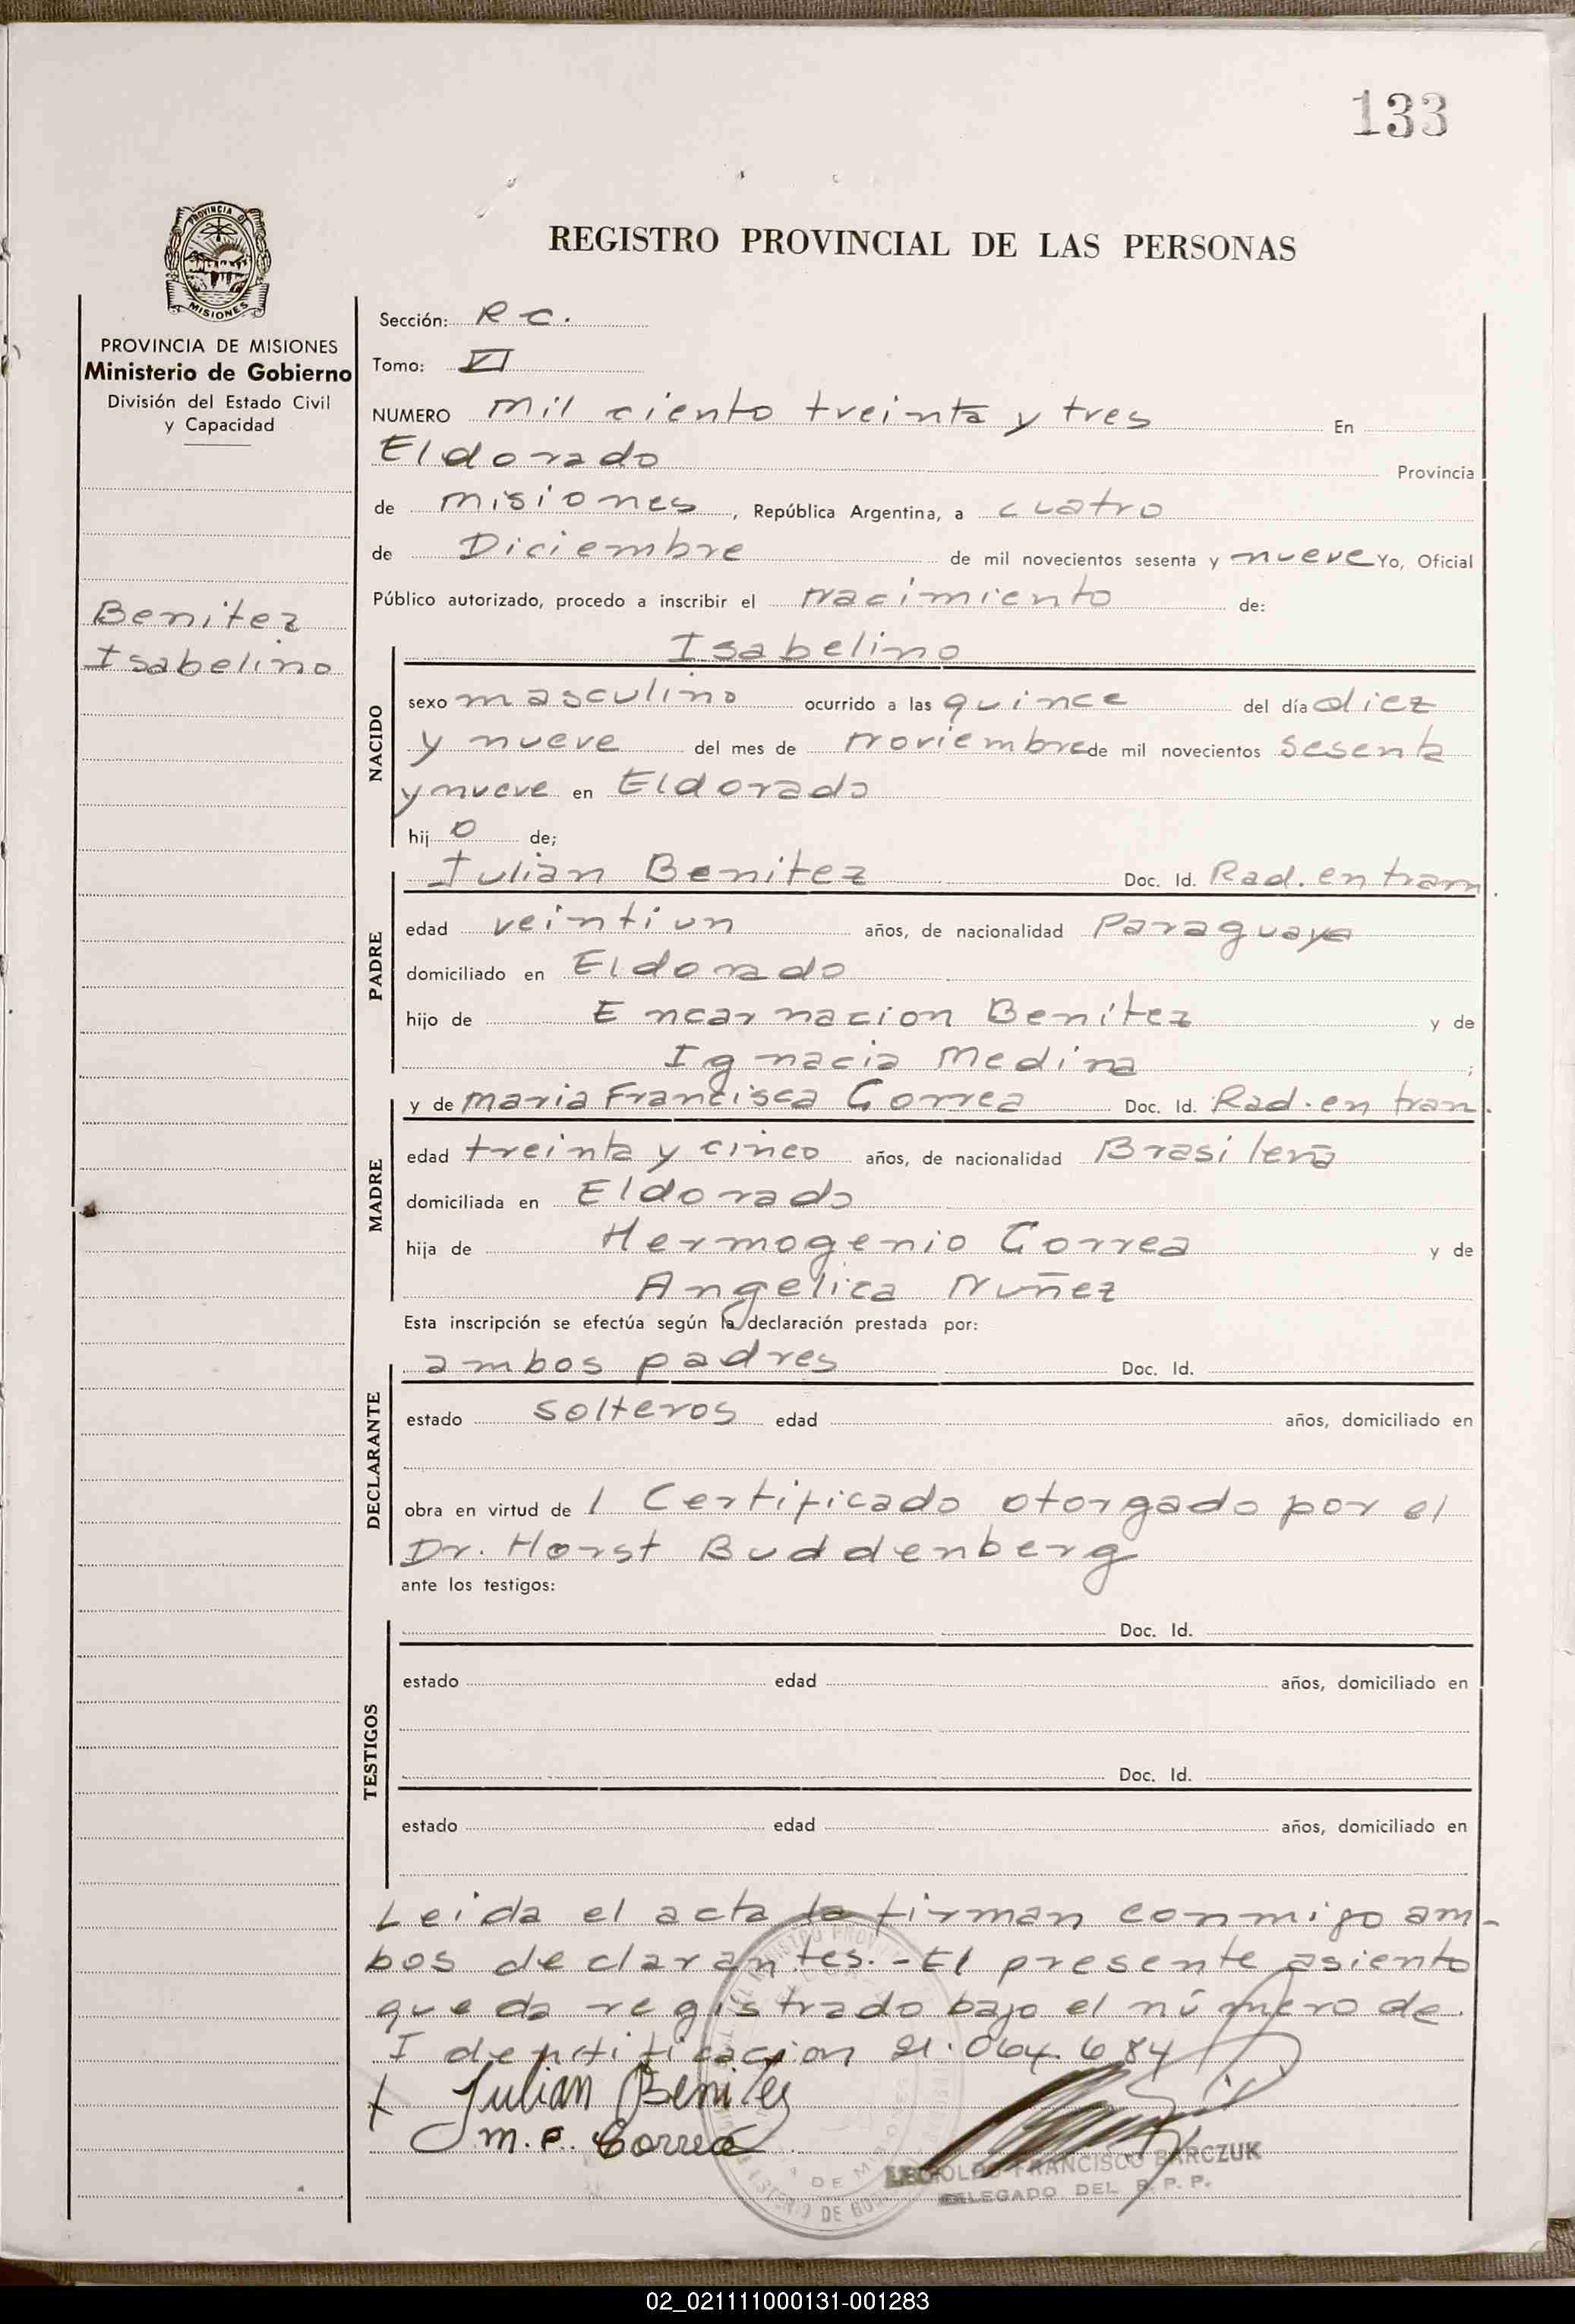 133
PROVINCIA DE
MISIONES
REGISTRO PROVINCIAL DE LAS PERSONAS
PROVINCIA DE MISIONES
Ministerio de Gobierno
División del Estado Civil
y Capacidad
Benitez
Isabelino
Sección: R C.
Tomo: VI
NUMERO mil ciento treinta y tres En
Eldorado Provincia
de misiones, República Argentina, a cuatro
de Diciembre de mil novecientos sesenta y nueve Yo, Oficial
Público autorizado, procedo a inscribir el nacimiento de:
NACIDO
Isabelino
sexo masculino ocurrido a las quince del día diez
y nueve del mes de noviembre de mil novecientos sesenta
y nueve en Eldorado
hijo de;
PADRE
Julian Benitez Doc. Id. Rad. en tram.
edad veintiun años, de nacionalidad Paraguaya
domiciliado en Eldorado
hijo de Encarnacion Benítez y de
Ignacia Medina ;
MADRE
y de maria Francisca Correa Doc. Id. Rad. en tran.
edad treinta y cinco años, de nacionalidad Brasileña
domiciliada en Eldorado
hija de Hermogenio Correa y de
Angelica Nuñez
Esta inscripción se efectúa según la declaración prestada por:
DECLARANTE
ambos padres Doc. Id.
estado solteros edad años, domiciliado en
obra en virtud de 1 Certificado otorgado por el
Dr. Horst Buddenberg
ante los testigos:
TESTIGOS
Doc. Id.
estado edad años, domiciliado en
Doc. Id.
estado edad años, domiciliado en
Leida el acta la firman conmigo am-
bos declarantes.-El presente asiento
queda registrado bajo el número de
Identificacion 21.064.684
x Julian Benites
M. F. Correa
LEOPOLDO FRANCISCO BARCZUK
DELEGADO DEL R. P. P.
02_021111000131-001283